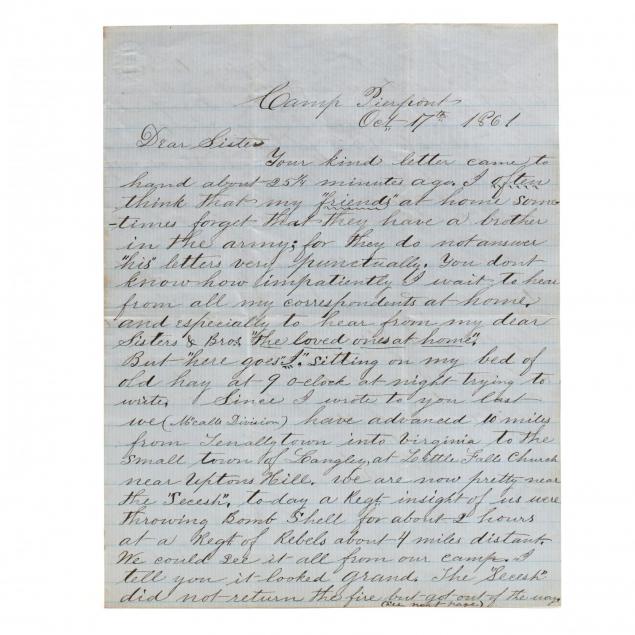 Camp Pierpont
Oct 17th 1861
Dear Sister
Your kind letter came to
hand about 25¼ minutes ago. I often
think that my "friends" at home some-
-times forget that they have a brother
in the army; for they do not answer
"his" letters very punctually. You don't
know how impatiently I wait to hear
from all my correspondents at home,
and especially to hear from my dear
Sisters & Bros. "the loved ones at home".
But "here goes I." sitting on my bed of
old hay at 9 o-clock at night trying to
write. Since I wrote to you last
we (McCalls Division) have advanced 10 miles
from Tenallytown into Virginia to the
small town of Langley, at Little Falls Church
near Uptons Hill. We are now pretty near
the "Secesh". to day a Regt insight of us were
throwing Bomb Shell for about 2 hours
at a Regt of Rebels about 4 miles distant.
We could see it all from our camp. I
tell you it looked grand. The "Secesh"
did not return the fire but got out of the way
(see next page)